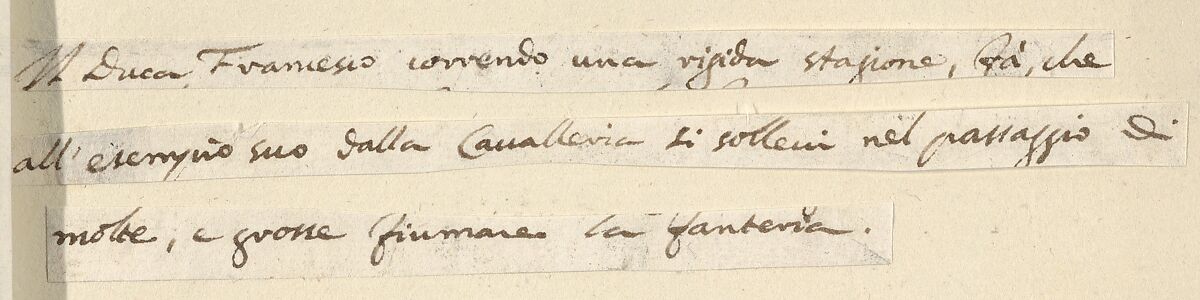 Il Duca Francesco correndo una rigida stagione, fà, che
all' esempio suo dalla Cavalleria si sollevi nel passaggio di
molte, e grosse fiumare la fanteria.